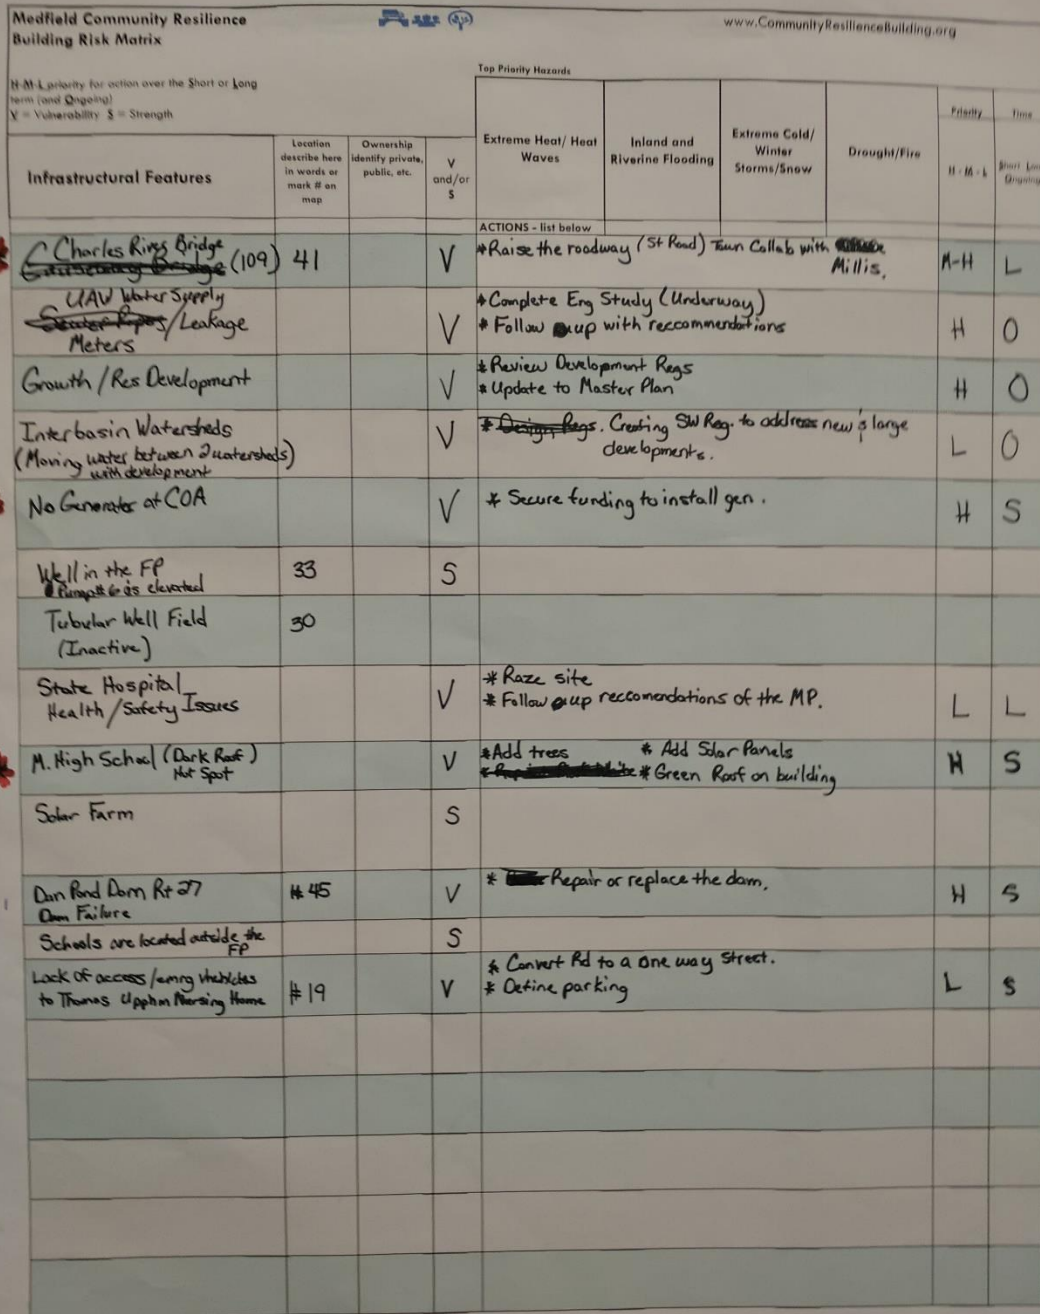 Medfield Community Resilience
Building Risk Matrix
www.CommunityResilienceBuilding.org
H-M-L priority for action over the Short or Long
term (and Ongoing)
V = Vulnerability S = Strength
Top Priority Hazards
Infrastructural Features
Location
describe here
in words or
mark # on
map
Ownership
identify private,
public, etc.
V
and/or
S
Extreme Heat/ Heat
Waves
Inland and
Riverine Flooding
Extreme Cold/
Winter
Storms/Snow
Drought/Fire
Priority
H - M - L
Time
Short Lon
Ongoing
ACTIONS - list below
Charles River Bridge
Causeway Bridge (109) 41 V
*Raise the roadway (St Road) Town Collab with
Millis. M-H L
UAW Water Supply
Sewer Pipes/Leakage
Meters V
*Complete Eng Study (Underway)
* Follow up with reccommendations H O
Growth/Res Development V
*Review Development Regs
*Update to Master Plan H O
Interbasin Watersheds
(Moving water between 2 watersheds)
with development V
* Design Regs. Creating SW Reg. to address new & large
developments. L O
No Generator at COA V * Secure funding to install gen. H S
Well in the FP 33 S
Pump# 6 is elevated
Tubular Well Field 30
(Inactive)
State Hospital
Health/Safety Issues V
* Raze site
* Follow up reccomendations of the MP. L L
M. High School (Dark Roof)
Hot Spot V
*Add trees * Add Solar Panels
* Green Roof on building H S
Solar Farm S
Dan Pond Dam Rt 27 #45 V * Repair or replace the dam. H S
Dam Failure
Schools are located outside the
FP S
Lack of access/emrg vhehicles
to Thomas Upphm Nersing Home #19 V
* Convert Rd to a one way street.
* Define parking L S